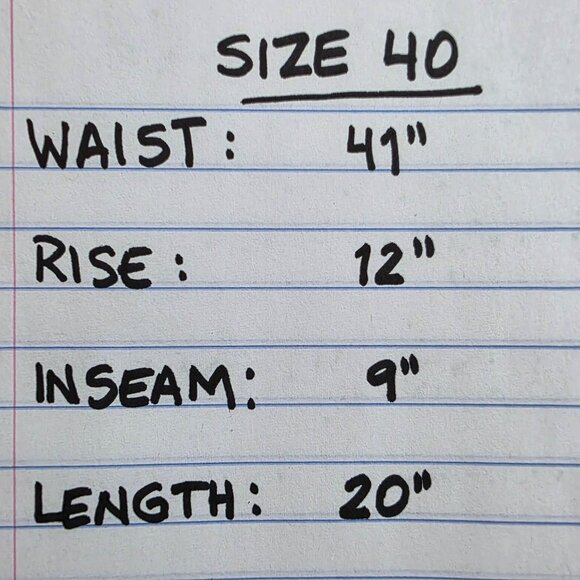 SIZE 40
WAIST: 41"
RISE: 12"
INSEAM: 9"
LENGTH: 20"